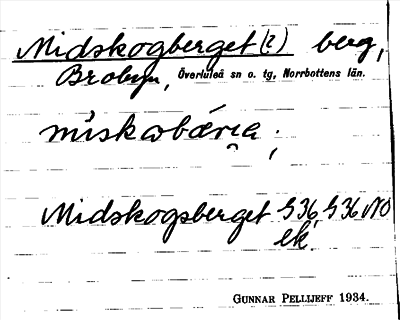 Midskogberget (?) berg,
Brobyn, Överluleå sn o. tg, Norrbottens län.
Midskogsberget G36, G36 NO
ek.
GUNNAR PELLIJEFF 1934.